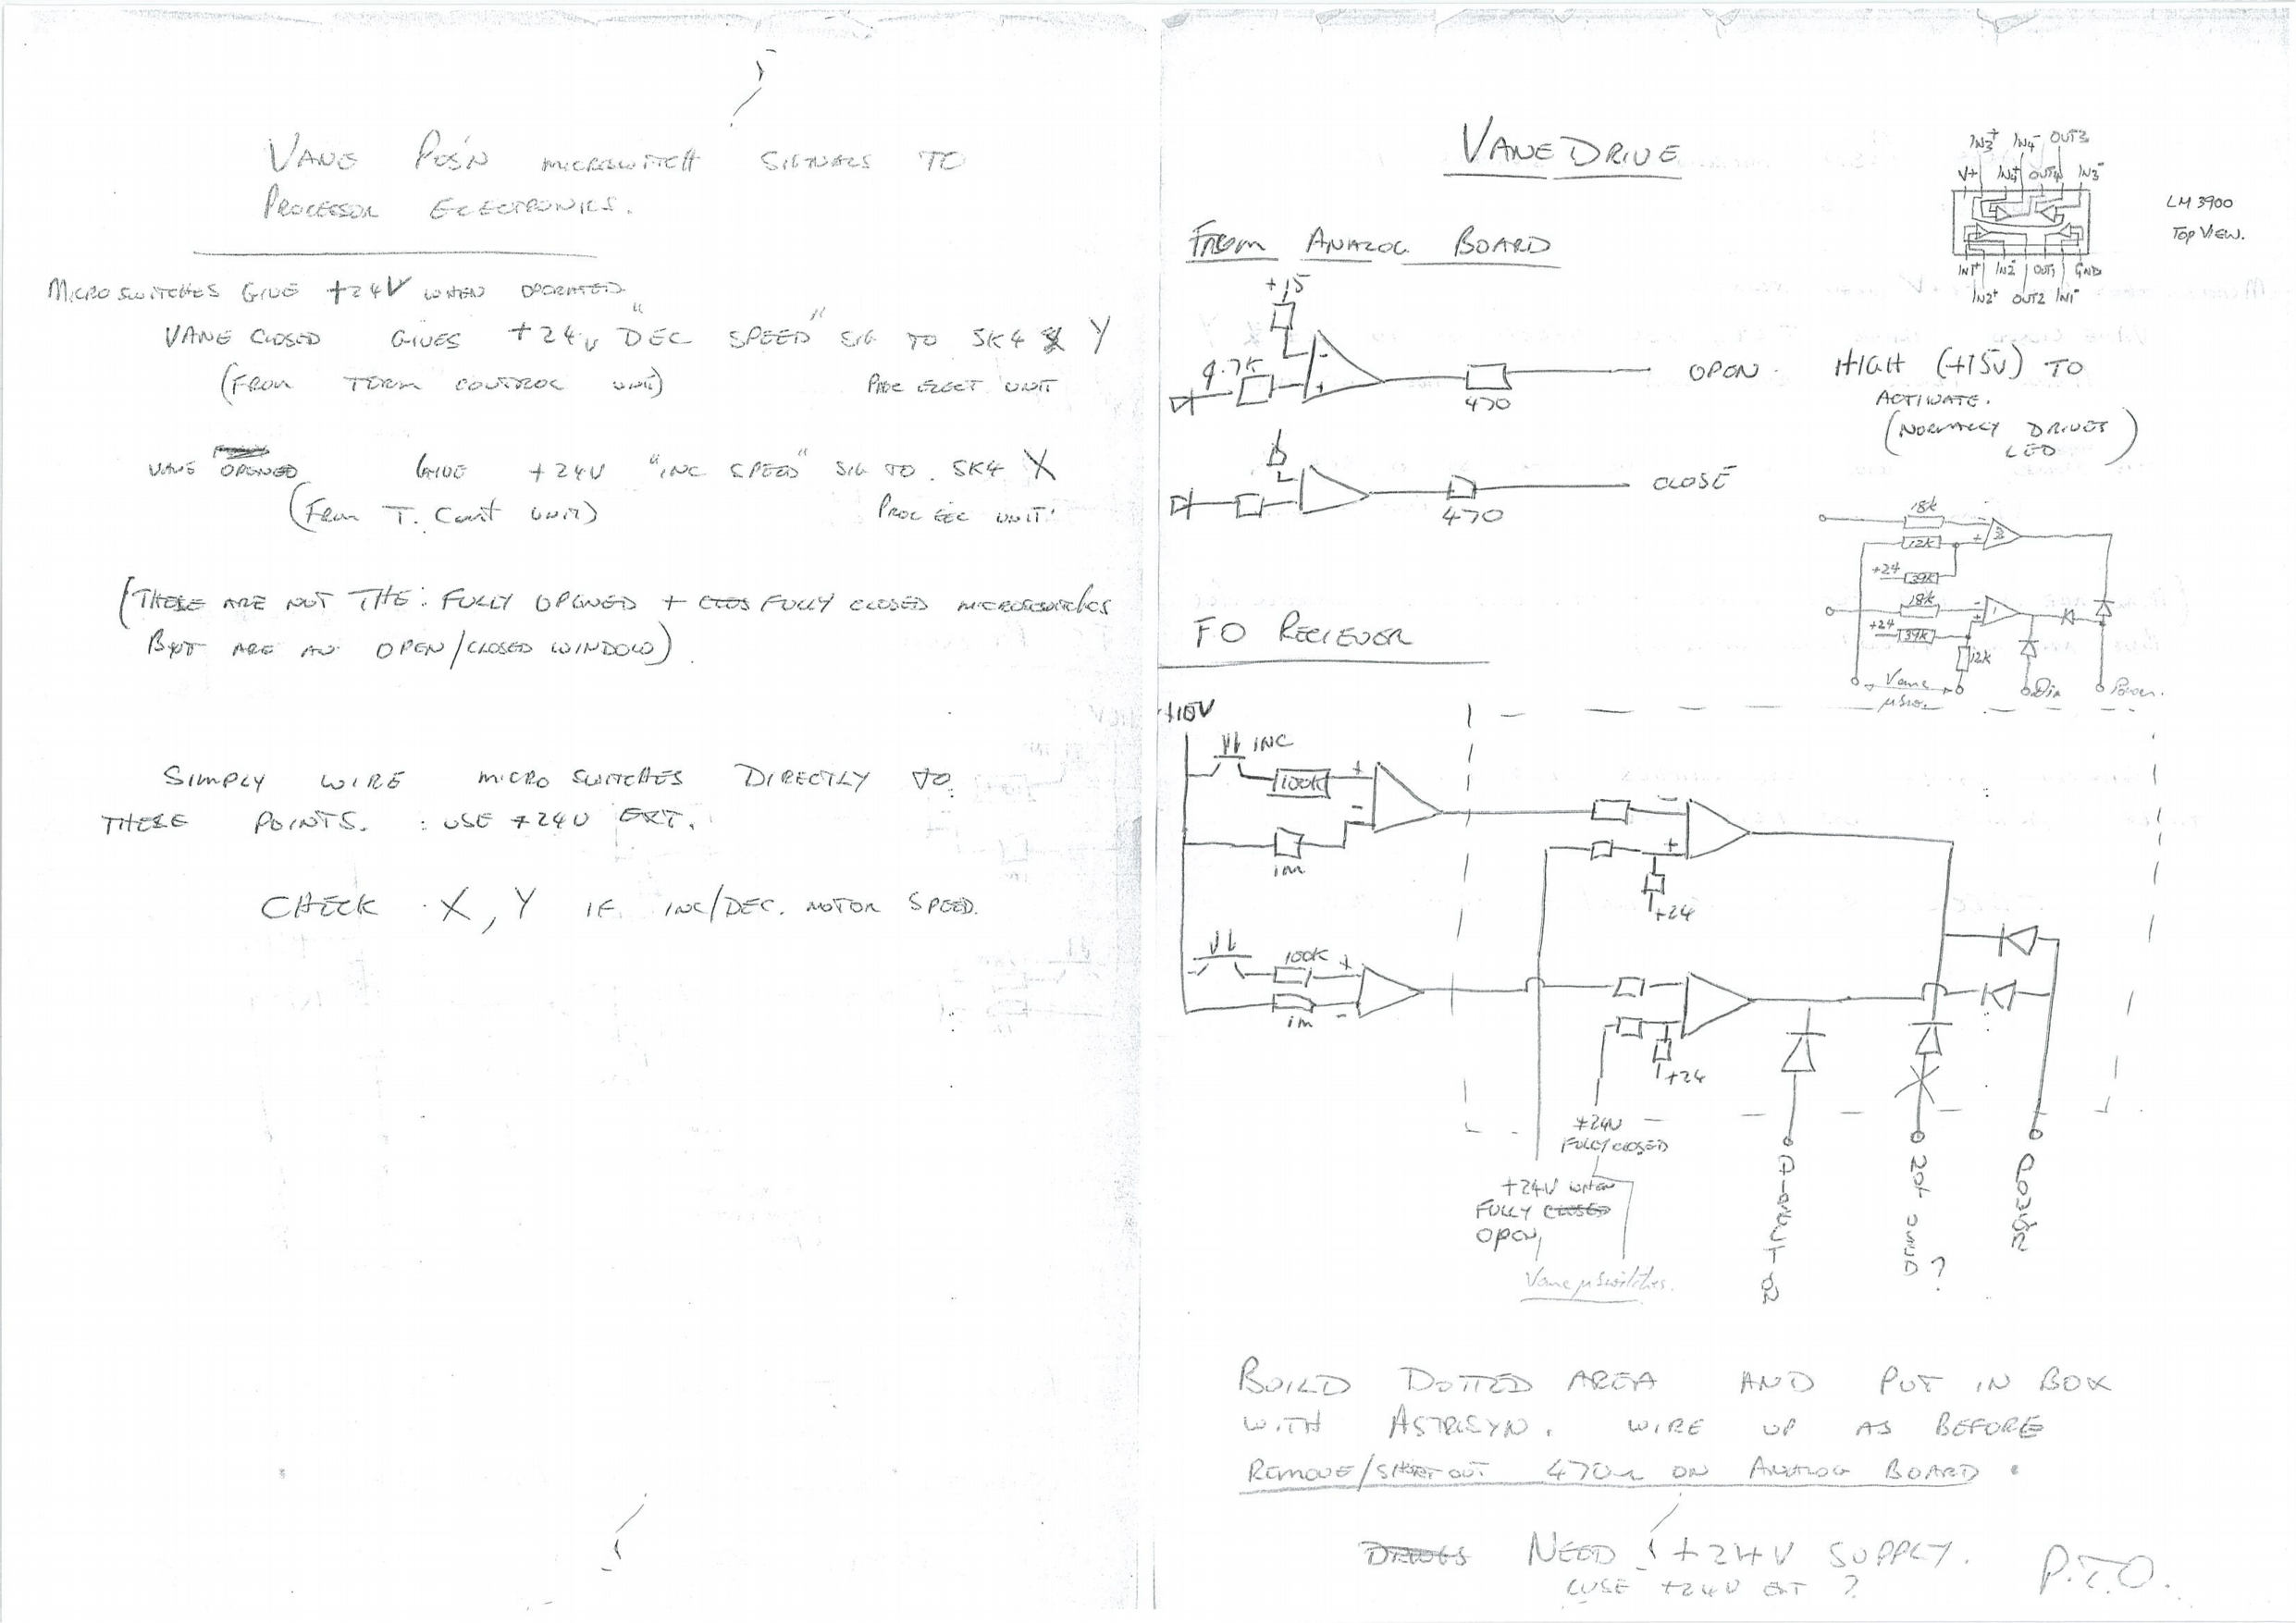 VANE POS'N MICROSWITCH SIGNALS TO
PROCESSOR ELECTRONICS.
MICROSWITCHES GIVE +24V WHEN OPERATED
VANE CLOSED GIVES +24V "DEC SPEED" SIG TO SK4 Y
(FROM TERM CONTROL UNIT) PROC ELECT UNIT
VANE OPENED GIVE +24V "INC SPEED" SIG TO. SK4 X
(FROM T. CONT UNIT) PROC ELEC UNIT.
(THESE ARE NOT THE: FULLY OPENED + FULLY CLOSED MICROSWITCHES
BUT ARE AN OPEN/CLOSED WINDOW)
SIMPLY WIRE MICRO SWITCHES DIRECTLY TO
THESE POINTS. : USE +24V EXT.
CHECK X, Y IF INC/DEC. MOTOR SPEED.
VANE DRIVE
IN3+ IN4- OUT3
V+ IN4+ OUT4 IN3-
LM 3900
TOP VIEW.
IN1+ IN2- OUT1 GND
IN2+ OUT2 IN1-
FROM ANALOG BOARD
+15
-
4.7K
+
470
OPEN. HIGH (+15V) TO
ACTIVATE.
(NORMALLY DRIVES
LED)
470
CLOSE
18K
-
3
12K
+
+24
39K
18K
-
1
+24
39K
+
12K
Vane
μSw.
Dir
FO RECIEVER
+10V
INC
100K
+
-
1M
-
+
+24
100K
+
1M
-
+24
+24V
FULLY CLOSED
+24V WHEN
FULLY CLOSED
OPEN
Vane μSwitches.
?
BUILD DOTTED AREA AND PUT IN BOX
WITH ASTROSYN. WIRE UP AS BEFORE
REMOVE/SHORT OUT 470Ω ON ANALOG BOARD.
NEED +24V SUPPLY.
(USE +24V EXT ?
P.T.O.